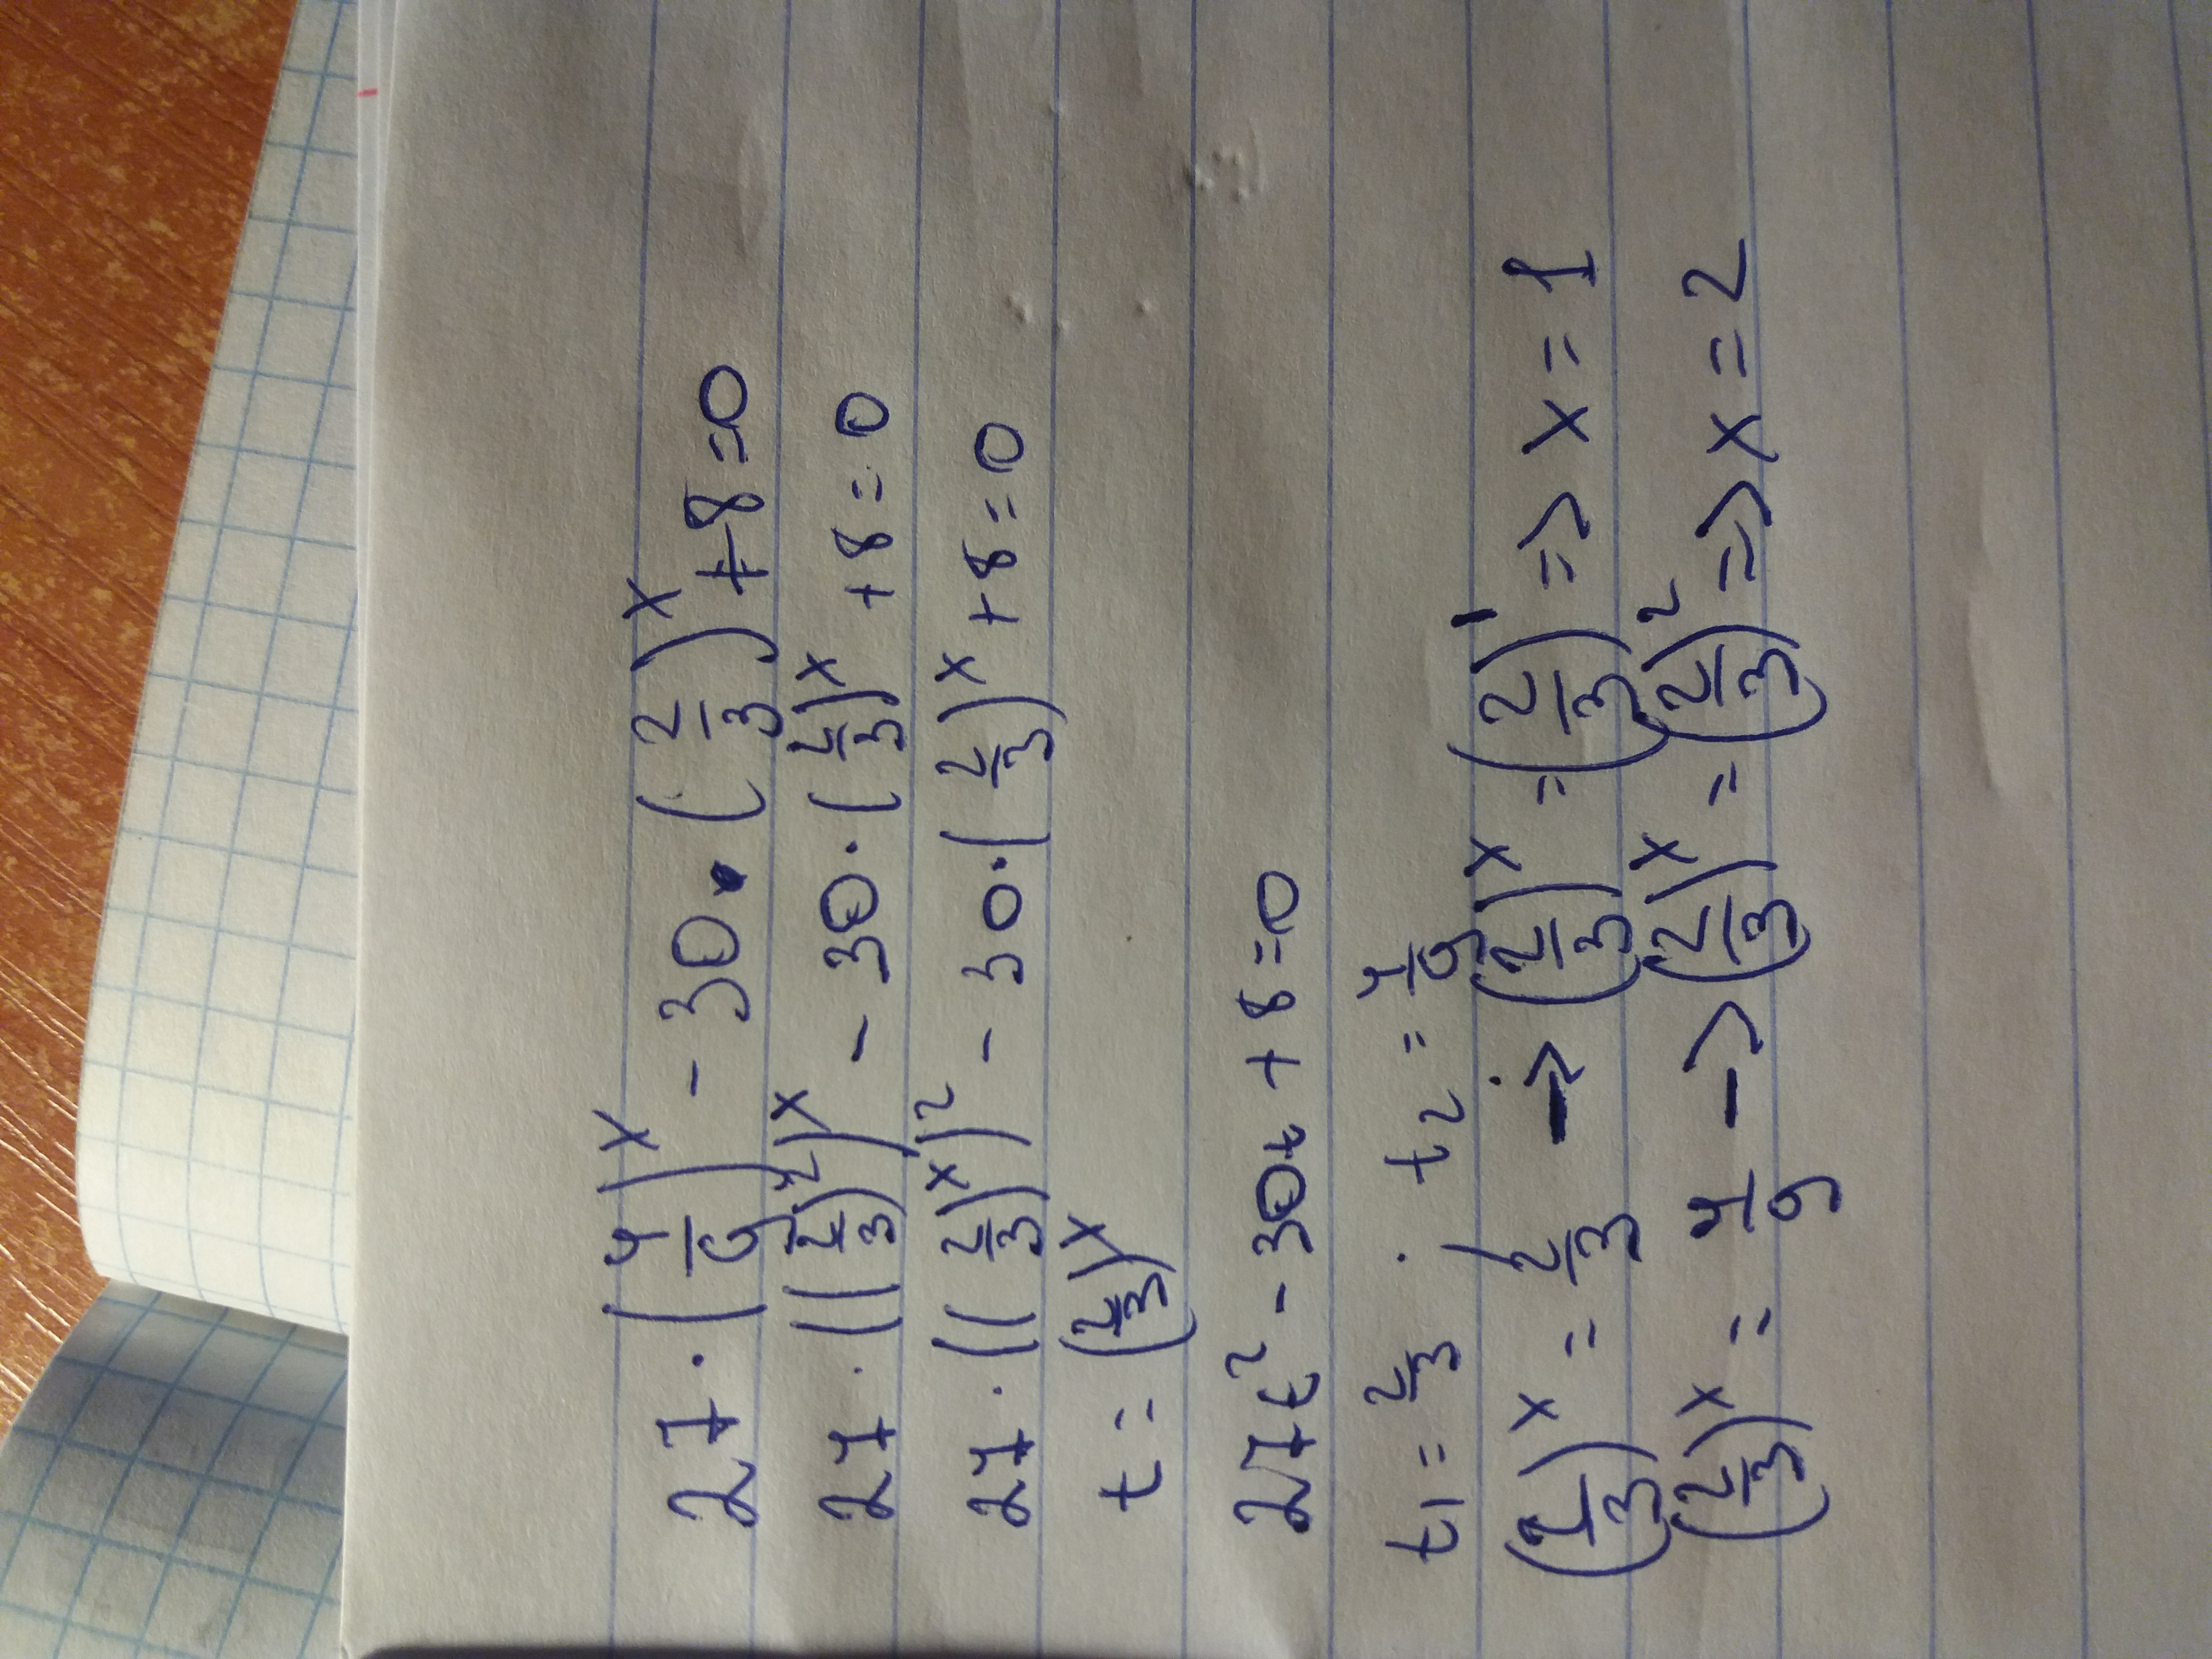 27 · (4/9)^x - 30 · (2/3)^x + 8 = 0
27 · ((2/3)^2)^x - 30 · (2/3)^x + 8 = 0
27 · ((2/3)^x)^2 - 30 · (2/3)^x + 8 = 0
t = (2/3)^x
27t^2 - 30t + 8 = 0
t1 = 2/3 . t2 = 4/9
(2/3)^x = 2/3 -> (2/3)^x = (2/3)^1 => x = 1
(2/3)^x = 4/9 -> (2/3)^x = (2/3)^2 => x = 2